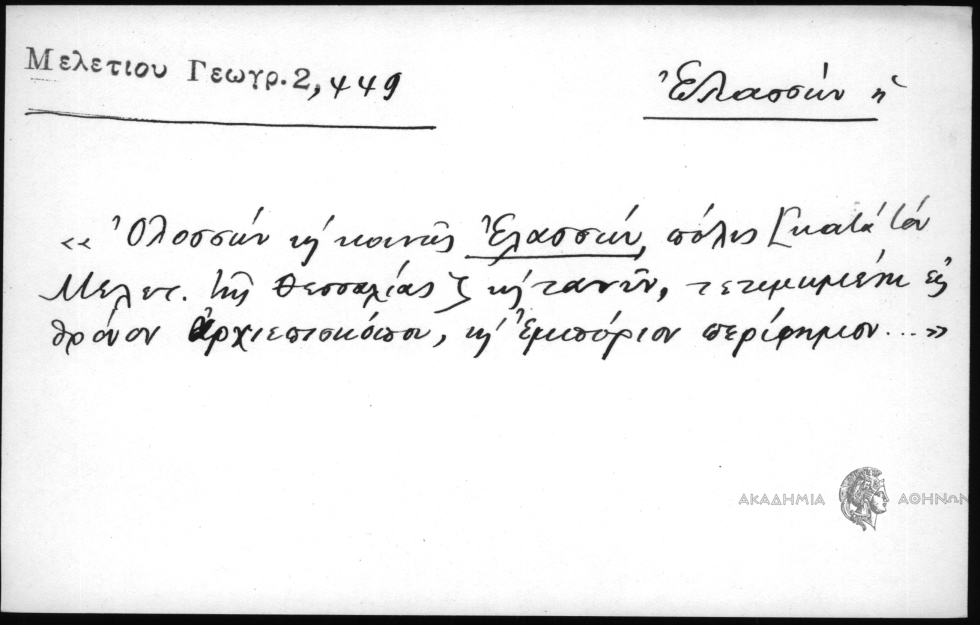 Μελετίου Γεωγρ. 2, 449
Ἐλασσών ἡ
«Ὀλοσσών κ κοινῶς Ἐλασσών, πόλις [κατὰ τὸν
Μελετ. τῆς Θεσσαλίας] κ τανῦν, τετιμημένη εἰς
θρόνον ἀρχιεπισκόπου, κ Ἐμπόριον περίφημον...»
ΑΚΑΔΗΜΙΑ ΑΘΗΝΩΝ